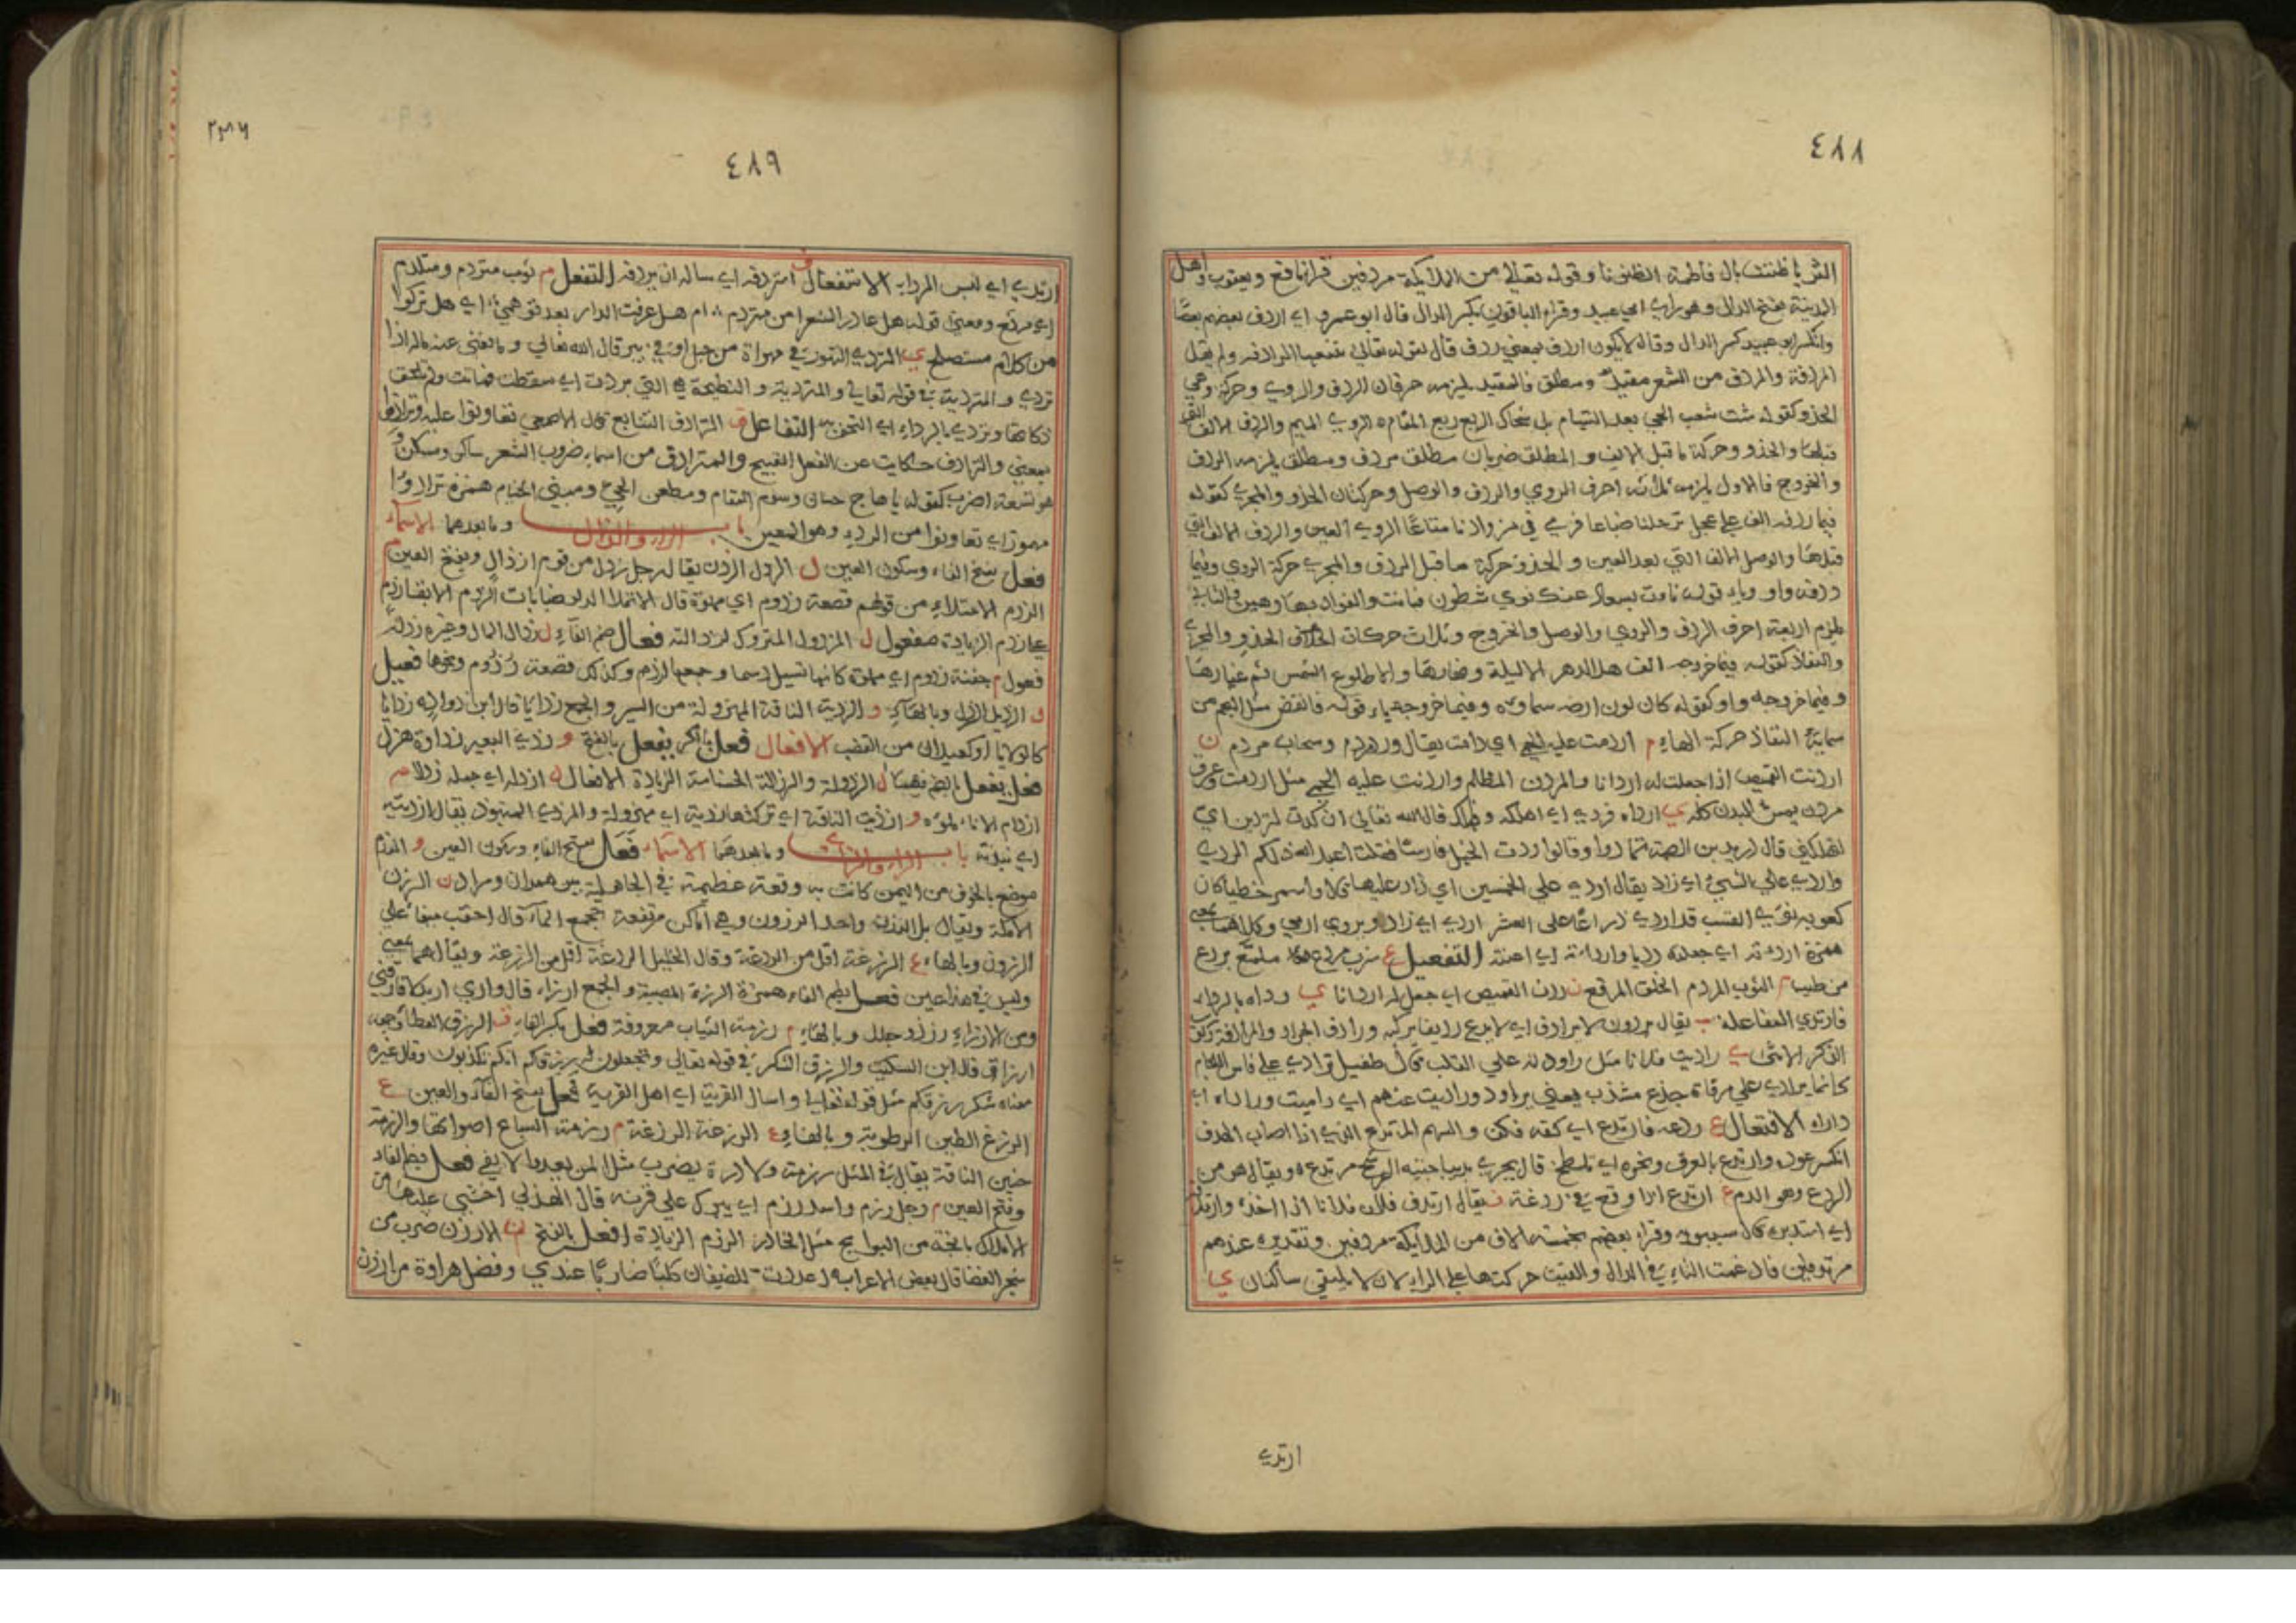 ٤٨٨
الثريا ظننت بال فاطمة الظنونا وقوله تعالى من الملائكة مردفين قرا نافع ويعقوب واهل
المدينة بفتح الدال وهو راي ابي عبيد وقراء الباقون بكسر الدال قال ابو عمرو اي اردف بعضهم بعضا
وانكر ابو عبيد كسر الدال وقال لا يكون اردف بمعنى ردف قال لقوله تعالى تتبعها الرادفة ولم يقل
المردفة والمردف من الشعر مقيد ومطلق فالمقيد يلزمه حرفان الردف والروي وحركة وهي
الحذو كقوله شت شعب الحي بعد التيام بل شجاك الربع ربع المقام الروي الميم والردف الالف التي
قبلها والحذو حركة ما قبل الالف والمطلق ضربان مطلق مردف ومطلق يلزمه الردف
والخروج فالاول يلزمه ثلاثه احرف الروي والردف والوصل وحركتان الحذو والمجرى كقوله
فيما ردفه الف على عجل ترحلنا ضباعا فرمي في مزوادنا متاعا الروي العين والردف الالف التي
قبلها والوصل الالف التي بعد العين والحذو حركة ما قبل الردف والمجرى حركة الروي وفيما
ردفه واو وياء قوله نات بسعاد عنك نوى شطون فبانت والفواد بها رهين والثاني
يلزم اربعة احرف الردف والروي والوصل والخروج وثلاث حركات الحذو والمجرى
والنفاذ كقوله فيما خروجه الف هل الدهر الا ليلة ونهارها والا طلوع الشمس ثم غيارها
وفيما خروجه واو كقوله كان لون ارضه سماوه وفيما خروجه ياء قوله فانقض مثل النجم من
سمايه النفاذ حركة الهاء م اردمت عليه الحمى اي دامت يقال ورد مردم وسحاب مردم ن
اردنت القميص اذا جعلت له اردانا والمردن المظلم واردنت عليه الحمى مثل اردمت وعرق
مردن يمس البدن كله ي ارداه فردي اي اهلكه فهلك قال الله تعالى ان كدت لتردين اي
لتهلكني قال دريد بن الصمة تنادوا وقالوا اردت الخيل فارسا فقلت اعبد الله ذلكم الردي
واردى على الشيء اي زاد يقال اردى على الخمسين اي زاد عليها قال واسمر خطيا كان
كعوبه نوى القسب قد اردى ذراعا على العشر اردى اي زاد ويروى اربى وكلاهما بمعنى
همزة اردءته اي جعلته رديا واردءته اي اعنته التفعيل ع ثوب مردع ملمع بردع
من طيب م الثوب المردم الخلق المرقع ن ردن القميص اي جعل له اردانا ي رداه بالرداء
فارتدى المفاعلة ف يقال برذون لا يرادف اي لا يدع رديفا يركبه ورادف الجراد والمرادفة ركوب
الذكر الانثى ي راديت فلانا مثل راودته على القلب قال طفيل يرادى على فاس اللجام
كانما يرادى على مرقاة جذع مشذب يعني يراود وراديت عنهم اي راميت ورااداه اي
داراه الافتعال ع ردعه فارتدع اي كفه فكف والسهم المرتدع الذي اذا اصاب الهدف
انكسر عوده وارتدع بالعرق ونحوه اي تلطخ قال يجري بديباجتيه الرشح مرتدع ويقال هو من
الردع وهو الدم ع ارتدع اذا وقع في ردغة ف يقال ارتدف فلان فلانا اذا اخذه وارتدفه
اي استدبره قال سيبويه وقراء بعضهم بخمسة الاف من الملايكة مردفين وتقديره عندهم
مرتدفين فادغمت التاء في الدال والقيت حركتها على الراء لان لا يلتقي ساكنان ي
ارتدى
٤٨٩
ارتدى اي لبس الرداء الاستفعال ف استردفه اي ساله ان يردفه التفعل م ثوب متردم ومتلدم
اي مرقع ومعنى قوله هل غادر الشعرا من متردم ام هل عرفت الدار بعد توهمي اي هل تركوا
من كلام مستصلح ي التردي التهور في مهواة من جبل او في بير قال الله تعالى وما يغني عنه ماله اذا
تردى والمتردية في قوله تعالى والمتردية والنطيحة هي التي تردت اي سقطت فماتت ولم تلحق
ذكاتها وتردى بالرداء اي التحف به التفاعل ف الترادف التتابع قال الاصمعي تعاونوا عليه وترادفوا
بمعنى والترادف حكايت عن الفعل القبيح والمترادف من اسماء ضروب الشعر ساكن وسكن
هو تسعة اضرب كقوله يا هاج حمانى رسوم المقام ومطعن الحي ومبنى الخيام همزة ترادؤا
مهموز اي تعاونوا من الردء وهو المعين باب الراء والذال وما بعدهما الاسماء
فعل بفتح الفاء وسكون العين ل الرذل الردن يقال رجل رذل من قوم ارذال وبفتح العين م
الرذم الامتلاء من قولهم قصعة رذوم اي مملوة قال لا تملا الدلو صبابات الرذم الا بقا رذم
على رذم الزيادة مفعول ل المرذول المتروك لرذالته فعال ضم الفاء ل رذال المال وغيره رذله
فعول م جفنة رذوم اي مملوة كانها تسيل دسما وجمعها رذم وكذلك قصعة رذوم ونحوها فعيل
ل الرذيل الرذل وبالهاء و الرذية الناقة المهزولة من السير والجمع رذايا قال ابن دواد له رذايا
كالولايا او كعيدان من القضب الافعال فعل بالكسر يفعل بالفتح و رذي البعير رذاوة هزل
فعل يفعل بالضم فيهما ل الرذولة والرذالة الخساسة الزيادة الافعال ل ارذله اي جعله رذلا م
ارذم الاناء لموه و ارذيت الناقة اي تركتها رذية اي مهزولة والمرذى المنبوذ يقال ارذيته
اي نبذته باب الراء والزاي وما بعدهما الاسماء فعل بفتح الفاء وسكون العين و الرزم
موضع بالجوف من اليمن كانت به وقعة عظيمة في الجاهلية بين همدان ومراد ن الرزن
الاكمة ويقال بل الرزن واحد الرزون وهي اماكن مرتفعة تجمع الماء قال احقب ميفاء على
الرزون وبالهاء ع الرزغة اقل من الردغة وقال الخليل الردغة اقل من الرزغة ويقال هما بمعنى
وليس في هذا عين فعل بضم الفاء همزة الرزء المصيبة والجمع ارزاء قال واري اربد قد فارقني
ومن الارزاء رزء ذو جلل وبالهاء م رزمة الثياب معروفة فعل بكسر الفاء ق الرزق العطا وجمعه
ارزاق قال ابن السكيت والرزق الشكر في قوله تعالى وتجعلون رزقكم انكم تكذبون وقال غيره
معناه شكر رزقكم مثل قوله تعالى واسال القرية اي اهل القرية فعل بفتح الفاء والعين ع
الرزغ الطين الرطوبة وبالهاء ع الرزغة الردغة م رزمة السباع اصواتها والرزمة
حنين الناقة يقال في المثل رزمة ولا درة يضرب مثلا لمن يعد ولا يفي فعل بضم الفاء
وفتح العين م رجل رزم واسد رزم اي يبرك على قرنه قال الهذلي اخشى عليها من
الاملاك بانجة من البوايج مثل الخادر الرزم الزيادة افعل بالفتح ن الارزن ضرب من
شجر العضا قال بعض الاعراب اعددت للضيفان كلبا ضاريا عندي وفضل هراوة من ارزن